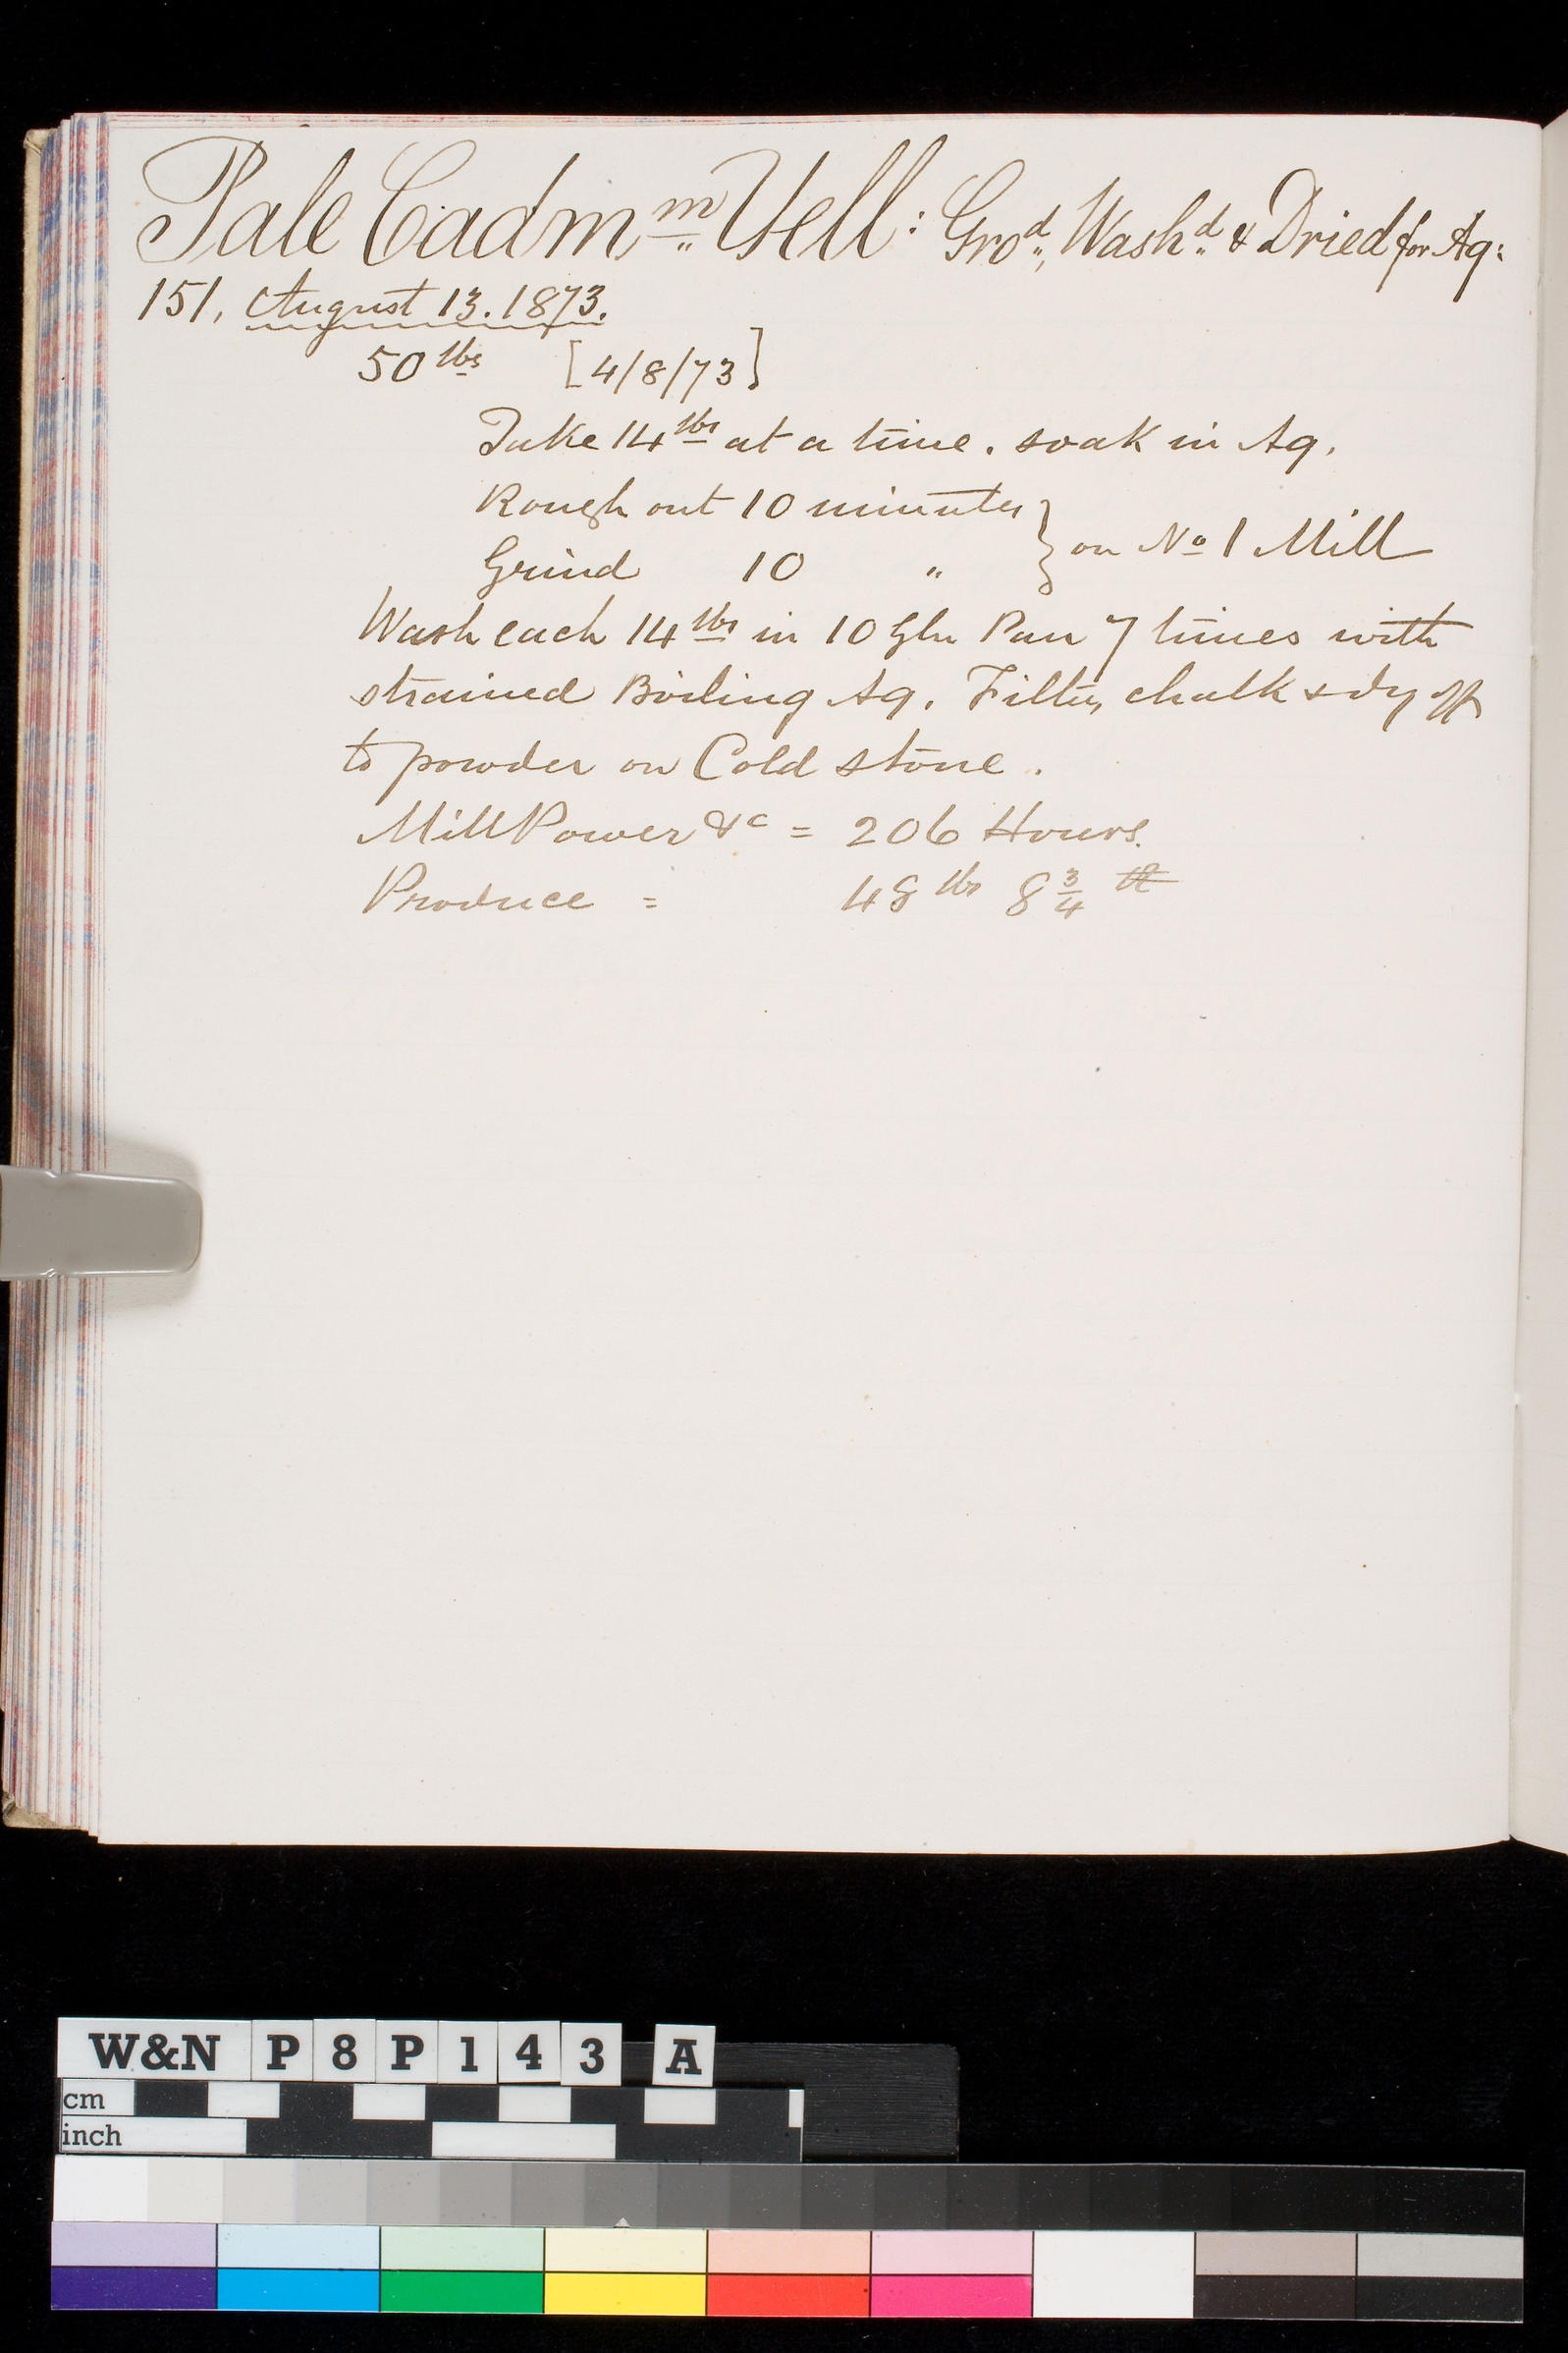 Pale Cadm^m Yell: Gro^d, Wash^d & Dried for Aq:
151, August 13. 1873.
50 lbs [4/8/73]
Take 14 lbs at a time. soak in Aq.
Rough out 10 minutes } on No 1 Mill
Grind 10 "
Wash each 14 lbs in 10 Gln Pan 7 times with
strained Boiling Aq. Filter, chalk & dry off
to powder on Cold stone.
Mill Power &c = 206 Hours.
Produce = 48 lbs 8 3/4
W&N P8P143 A
cm
inch